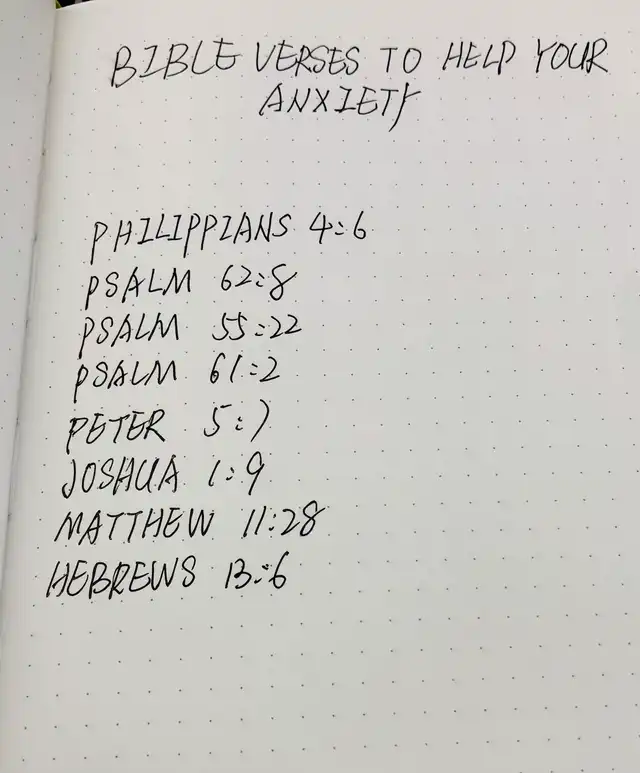 BIBLE VERSES TO HELP YOUR
ANXIETY
PHILIPPIANS 4:6
PSALM 62:8
PSALM 55:22
PSALM 61:2
PETER 5:7
JOSHUA 1:9
MATTHEW 11:28
HEBREWS 13:6